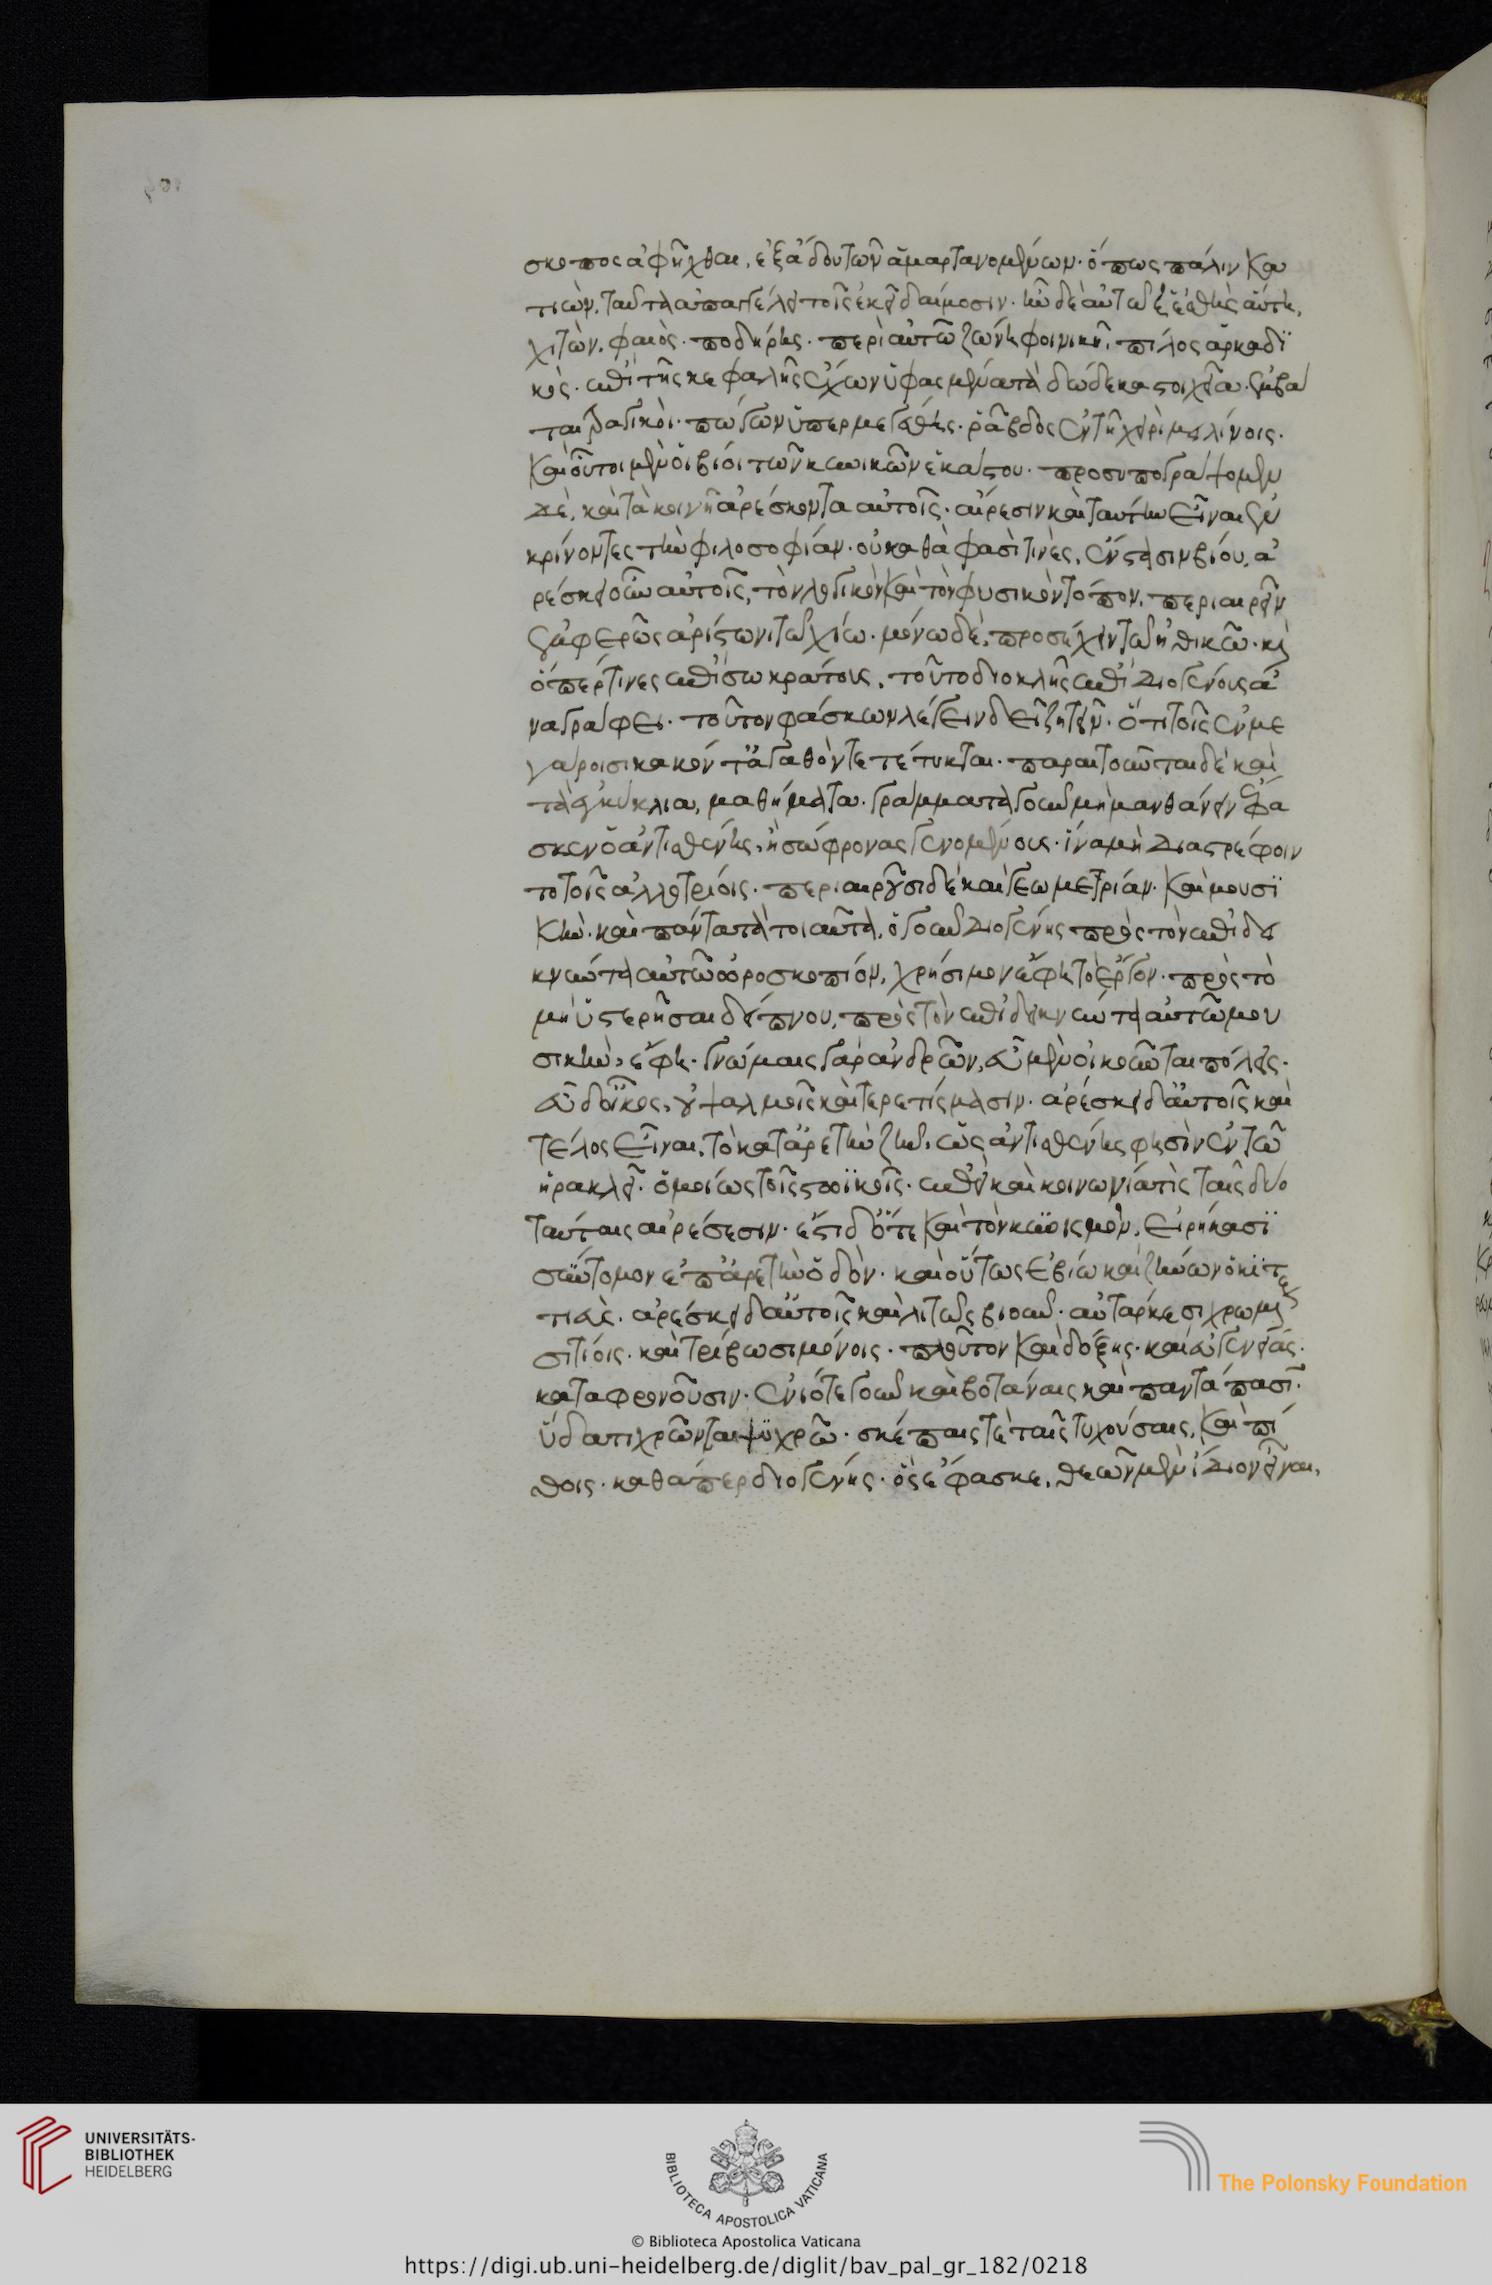 σκοπος ἀφῆχθαι, ἐξ ἅδου τῶν ἁμαρτανομένων· ὅπως πάλιν κα
τιὼν, ταῦτα ἀπαγγέλει τοῖς ἐκεῖ δαίμοσιν. ἦν δὲ αὐτῶ ἡ ἐσθὴς αὕτη,
χιτὼν, φαιὸς· ποδήρης· περὶ αὐτῶ ζώνη φοινικῆ, πίλος ἀρκαδϊ
κὸς· ἐπὶ τῆς κεφαλῆς ἔχων ὑφασμένα τὰ δώδεκα στοιχεῖα· ἐμβά
ται τραγικοὶ· πώγων ὑπερμεγέθης· ῥάβδος ἐν τῆ χειρὶ μειλίνοις.
καὶ οὗτοι μὲν οἱ βίοι τῶν κυνικῶν ἑκάστου· προσυπογράψομεν
δὲ, καὶ τὰ κοινῆ ἀρέσκοντα αὐτοῖς· αἵρεσιν καὶ ταύτην εἶναι ἐγ
κρίνοντες τὴν φιλοσοφίαν· οὐ καθά φασὶ τινὲς, ἔνστασιν βίου, ἀ
ρέσκει οὖν αὐτοῖς, τὸν λογικὸν καὶ τὸν φυσικὸν τόπον, περιαιρεῖν
ἐμφερῶς ἀρίστωνι τῶ χίω· μόνω δὲ, προσέχειν τῶ ἠθικῶ· καὶ
ὅπερ τινες ἐπὶ σωκράτους, τοῦτο διοκλῆς ἐπὶ διογένους ἀ
ναγράφει· τοῦτον φάσκων λέγειν δεῖ ζητεῖν· ὅτι τοῖς ἐν με
γάροισι κακόν τ' ἀγαθόν τε τέτυκται· παραιτοῦνται δὲ καὶ
τὰ ἐγκύκλια, μαθήματα· γράμματα γοῦν μὴ μανθάνειν ἔφα
σκεν ὁ ἀντισθένης, ἡ σώφρονας γενομένους· ἵνα μὴ διαστρέφοιν
το τοῖς ἀλλοτρίοις· περιαιροῦσι δὲ καὶ γεωμετρίαν· καὶ μουσϊ
κὴν· καὶ πάντα τὰ τοιαῦτα, ὁ γοῦν διογένης πρὸς τὸν ἐπιδει
κνύντα αὐτῶ ὡροσκοπίον, χρήσιμον ἔφη τὸ ἔργον· πρὸς τὸ
μὴ ὑστερῆσαι δείπνου, πρὸς τὸν ἐπιδεικνύντα αὐτῶ μου
σικὴν, ἔφη· γνώμαις γὰρ ἀνδρῶν, εὖ μὲν οἰκοῦνται πόλεις·
εὖ δ' οἶκος, οὐ ψαλμοῖς καὶ τερετίσμασιν· ἀρέσκει δ' αὐτοῖς καὶ
τέλος εἶναι, τὸ κατ' ἀρετὴν ζῆν, ὥς ἀντισθένης φησὶν ἐν τῶ
ἡρακλεῖ· ὁμοίως τοῖς στωϊκοῖς· ἐπεὶ καὶ κοινωνία τὶς ταῖς δυο
ταύταις αἱρέσεσιν· ἔστι δ' ὅτε καὶ τὸν κυνισμὸν, εἰρήκασϊ
σύντομον ἐπ' ἀρετὴν ὁδὸν· καὶ οὕτως ἐβίω καὶ ζήνων ὁ κϊτ
τιεὺς· ἀρέσκει δ' αὐτοῖς καὶ λιτῶς βιοῦν· αὐτάρκεσι χρωμέν
σιτίοις· καὶ τρίβωσι μόνοις· πλοῦτον καὶ δόξης· καὶ εὐγενείας·
καταφρονοῦσιν· ἐνιότε γοῦν καὶ βοτάναις καὶ παντάπασϊ·
ὕδατι χρῶνται ψυχρῶ· σκέπαις τὲ ταῖς τυχούσαις, καὶ πί
θοις· καθάπερ διογένης· ὃς ἔφασκε, θεῶν μὲν ἴδιον εἶναι,
UNIVERSITÄTS-
BIBLIOTHEK
HEIDELBERG
BIBLIOTECA APOSTOLICA VATICANA
The Polonsky Foundation
© Biblioteca Apostolica Vaticana
https://digi.ub.uni-heidelberg.de/diglit/bav_pal_gr_182/0218